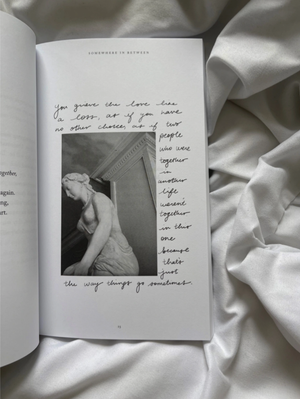 FAREWORDS IN BETWEEN
you grieve the love like
a loss, as if you have
no other choice, as if two
people
who were
together
in
another
life
weren't
together
in this
one
because
that's
just
the way things go sometimes.
together.
again.